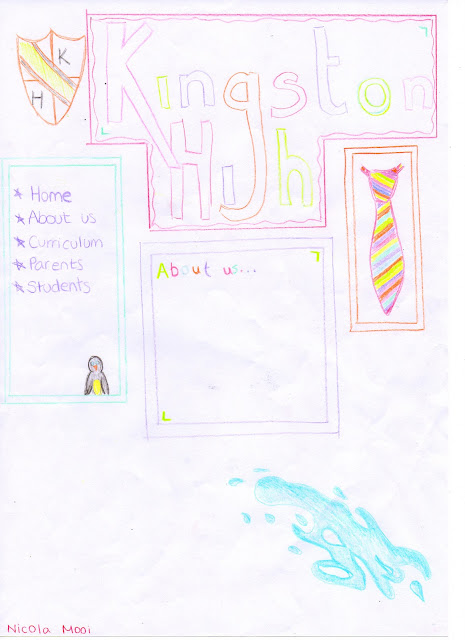 K
H
Kingston
High
Home
About us
Curriculum
Parents
Students
About us...
Nicola Mooi